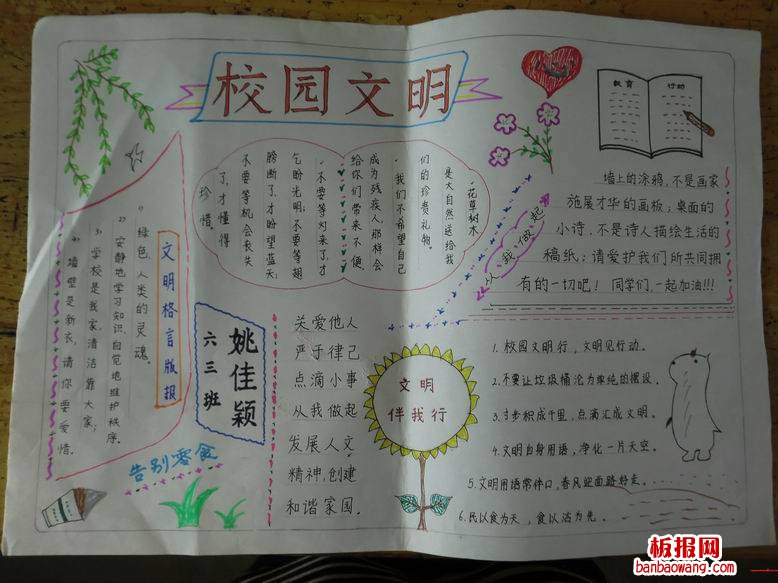 校园文明
教育 行动
·花草树木
是大自然送给我
们的珍贵礼物。
·我们不希望自己
成为残疾人,那样会
给你们带来不便
·不要等灯来了,才
乞盼光明;不要等翅
膀断了,才盼望蓝天
不要等机会丧失
了,才懂得
珍惜。
从我做起
墙上的涂鸦,不是画家
施展才华的画板;桌面的
小诗,不是诗人描绘生活的
稿纸;请爱护我们所共同拥
有的一切吧!同学们,一起加油!!!
文明格言版报
绿色,人类的灵魂。
2)安静地学习知识,自觉地维护秩序。
3)学校是我家,清洁靠大家;
墙壁是新衣,请你要爱惜。
告别零食
姚佳颖
六三班
关爱他人
严于律己
点滴小事
从我做起
发展人文
精神,创建
和谐家园。
文明
伴我行
1.校园文明行,文明见行动。
2.不要让垃圾桶沦为单纯的摆设。
3.步积成千里,点滴汇成文明。
4.文明自身用语,净化一片天空。
5.文明用语常伴口,春风迎面路好走。
6.民以食为天,食以洁为先。
板报网
banbaowang.com